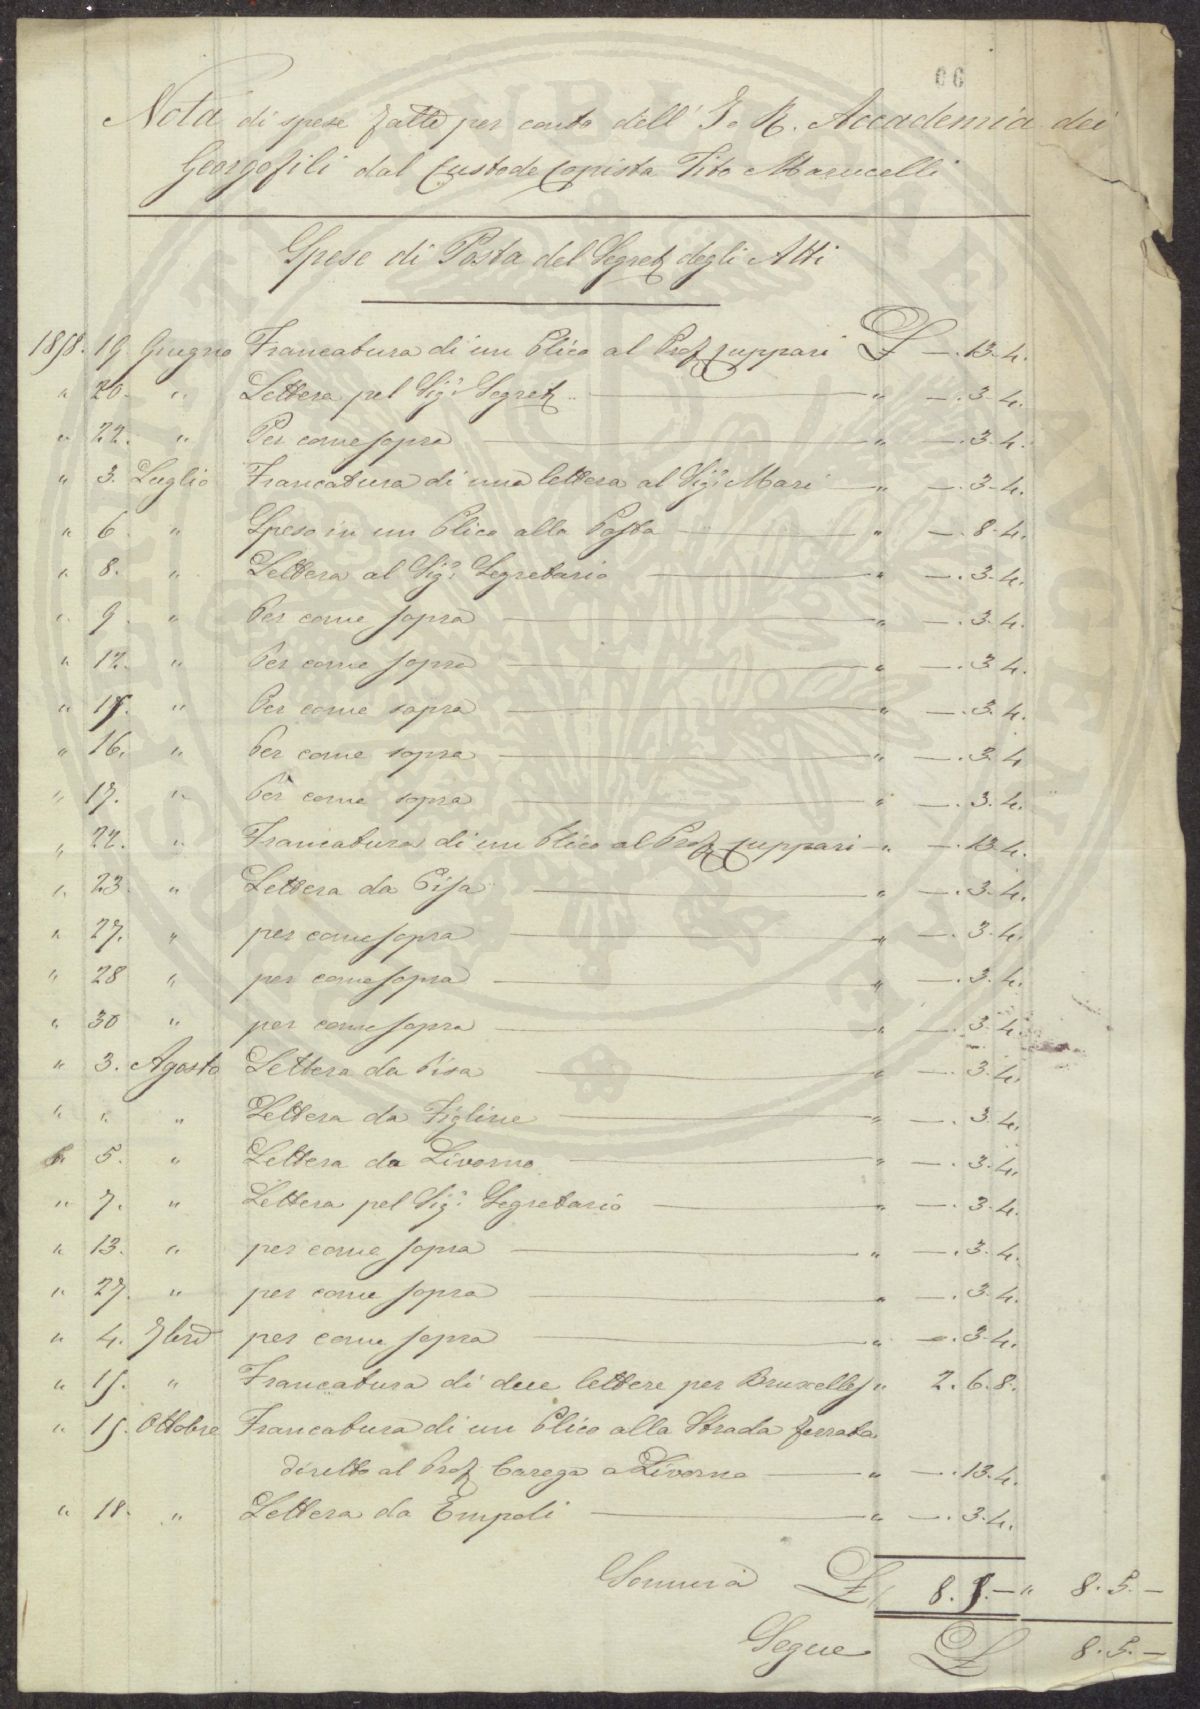 66
Nota di spese fatte per conto dell' I. e R. Accademia dei
Georgofili dal Custode Copista Tito Marucelli
Spese di Posta del Segret. degli Atti
1858. 19. Giugno Francatura di un Plico al Prof. Cuppari £ —. 13. 4.
" 20. " Lettera pel Sig.r Segret. " —. 3. 4.
" 22. " Per come sopra " —. 3. 4.
" 3. Luglio Francatura di una lettera al Sig.r Mari " —. 3. 4.
" 6 " Speso in un Plico alla Posta " —. 8. 4.
" 8. " Lettera al Sig.r Segretario " —. 3. 4.
" 9. " Per come sopra " —. 3. 4.
" 12. " Per come sopra " —. 3. 4.
" 15. " Per come sopra " —. 3. 4.
" 16. " Per come sopra " —. 3. 4
" 17. " Per come sopra " —. 3. 4.
" 22. " Francatura di un Plico al Prof. Cuppari " —. 13. 4.
" 23 " Lettera da Pisa " —. 3. 4.
" 27. " per come sopra " —. 3. 4.
" 28 " per come sopra " —. 3. 4.
" 30 " per come sopra " —. 3. 4.
" 3. Agosto Lettera da Pisa " —. 3. 4.
" " " Lettera da Figline " —. 3. 4.
" 5. " Lettera da Livorno " —. 3. 4.
" 7. " Lettera pel Sig.r Segretario " —. 3. 4.
" 13. " per come sopra " —. 3. 4.
" 27. " per come sopra " —. 3. 4.
" 4. 7bre per come sopra " —. 3. 4.
" 15. " Francatura di due lettere per Bruxelles " 2. 6. 8.
" 15. Ottobre Francatura di un Plico alla Strada ferrata
diretto al Prof. Carega a Livorno " —. 13. 4.
" 18. " Lettera da Empoli " —. 3. 4.
Somma £ 8. 5. — " 8. 5. —
Segue £ 8. 5. —